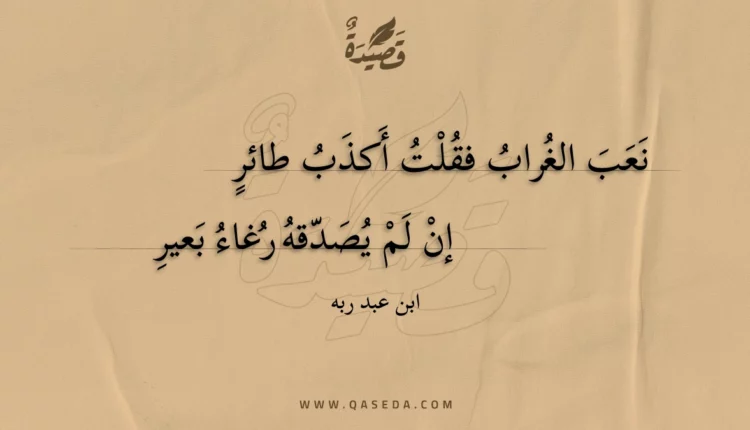 قَصِيْدَةٌ
نَعَبَ الغُرابُ فقُلْتُ أَكذَبُ طائرٍ
إنْ لَمْ يُصَدّقهُ رُغاءُ بَعيرِ
ابن عبد ربه
WWW.QASEDA.COM